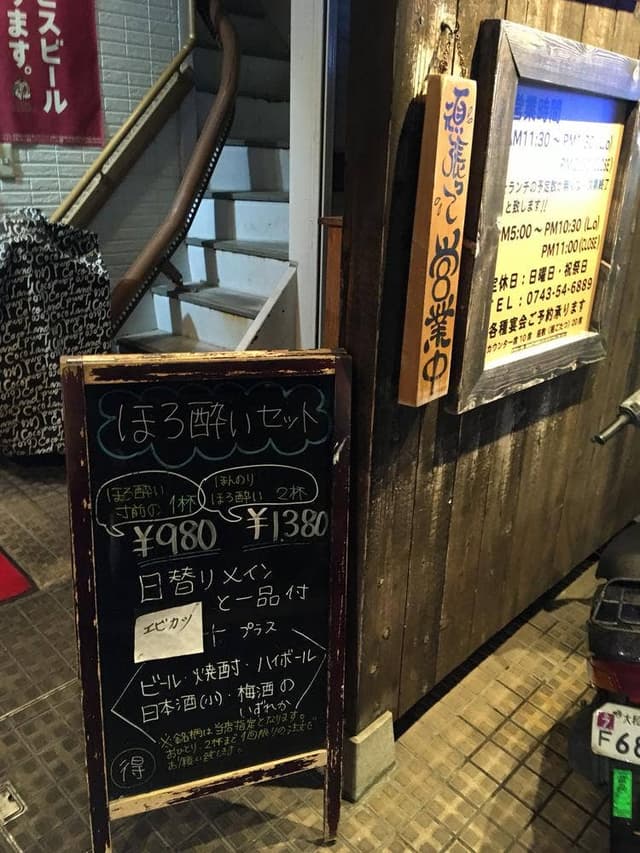 スビール
ます。
頑張って営業中
営業時間
AM11:30～PM1:30(L.o)
ランチの予定数が無くなり次第終了
と致します!!
PM5:00～PM10:30(L.o)
PM11:00(CLOSE)
定休日:日曜日・祝祭日
TEL:0743-54-6889
各種宴会ご予約承ります
カウンター席10席
ほろ酔いセット
ほろ酔い
寸前の 1杯
¥980
ほんのり
ほろ酔い 2杯
¥1,380
日替りメイン
と一品付
エビカツ
+ プラス
ビール・焼酎・ハイボール
日本酒(小)・梅酒の
いずれか
※銘柄は当店指定となります。
おひとり2杯まで1回限りの注文で
お願い致します。
得
大和
F 68